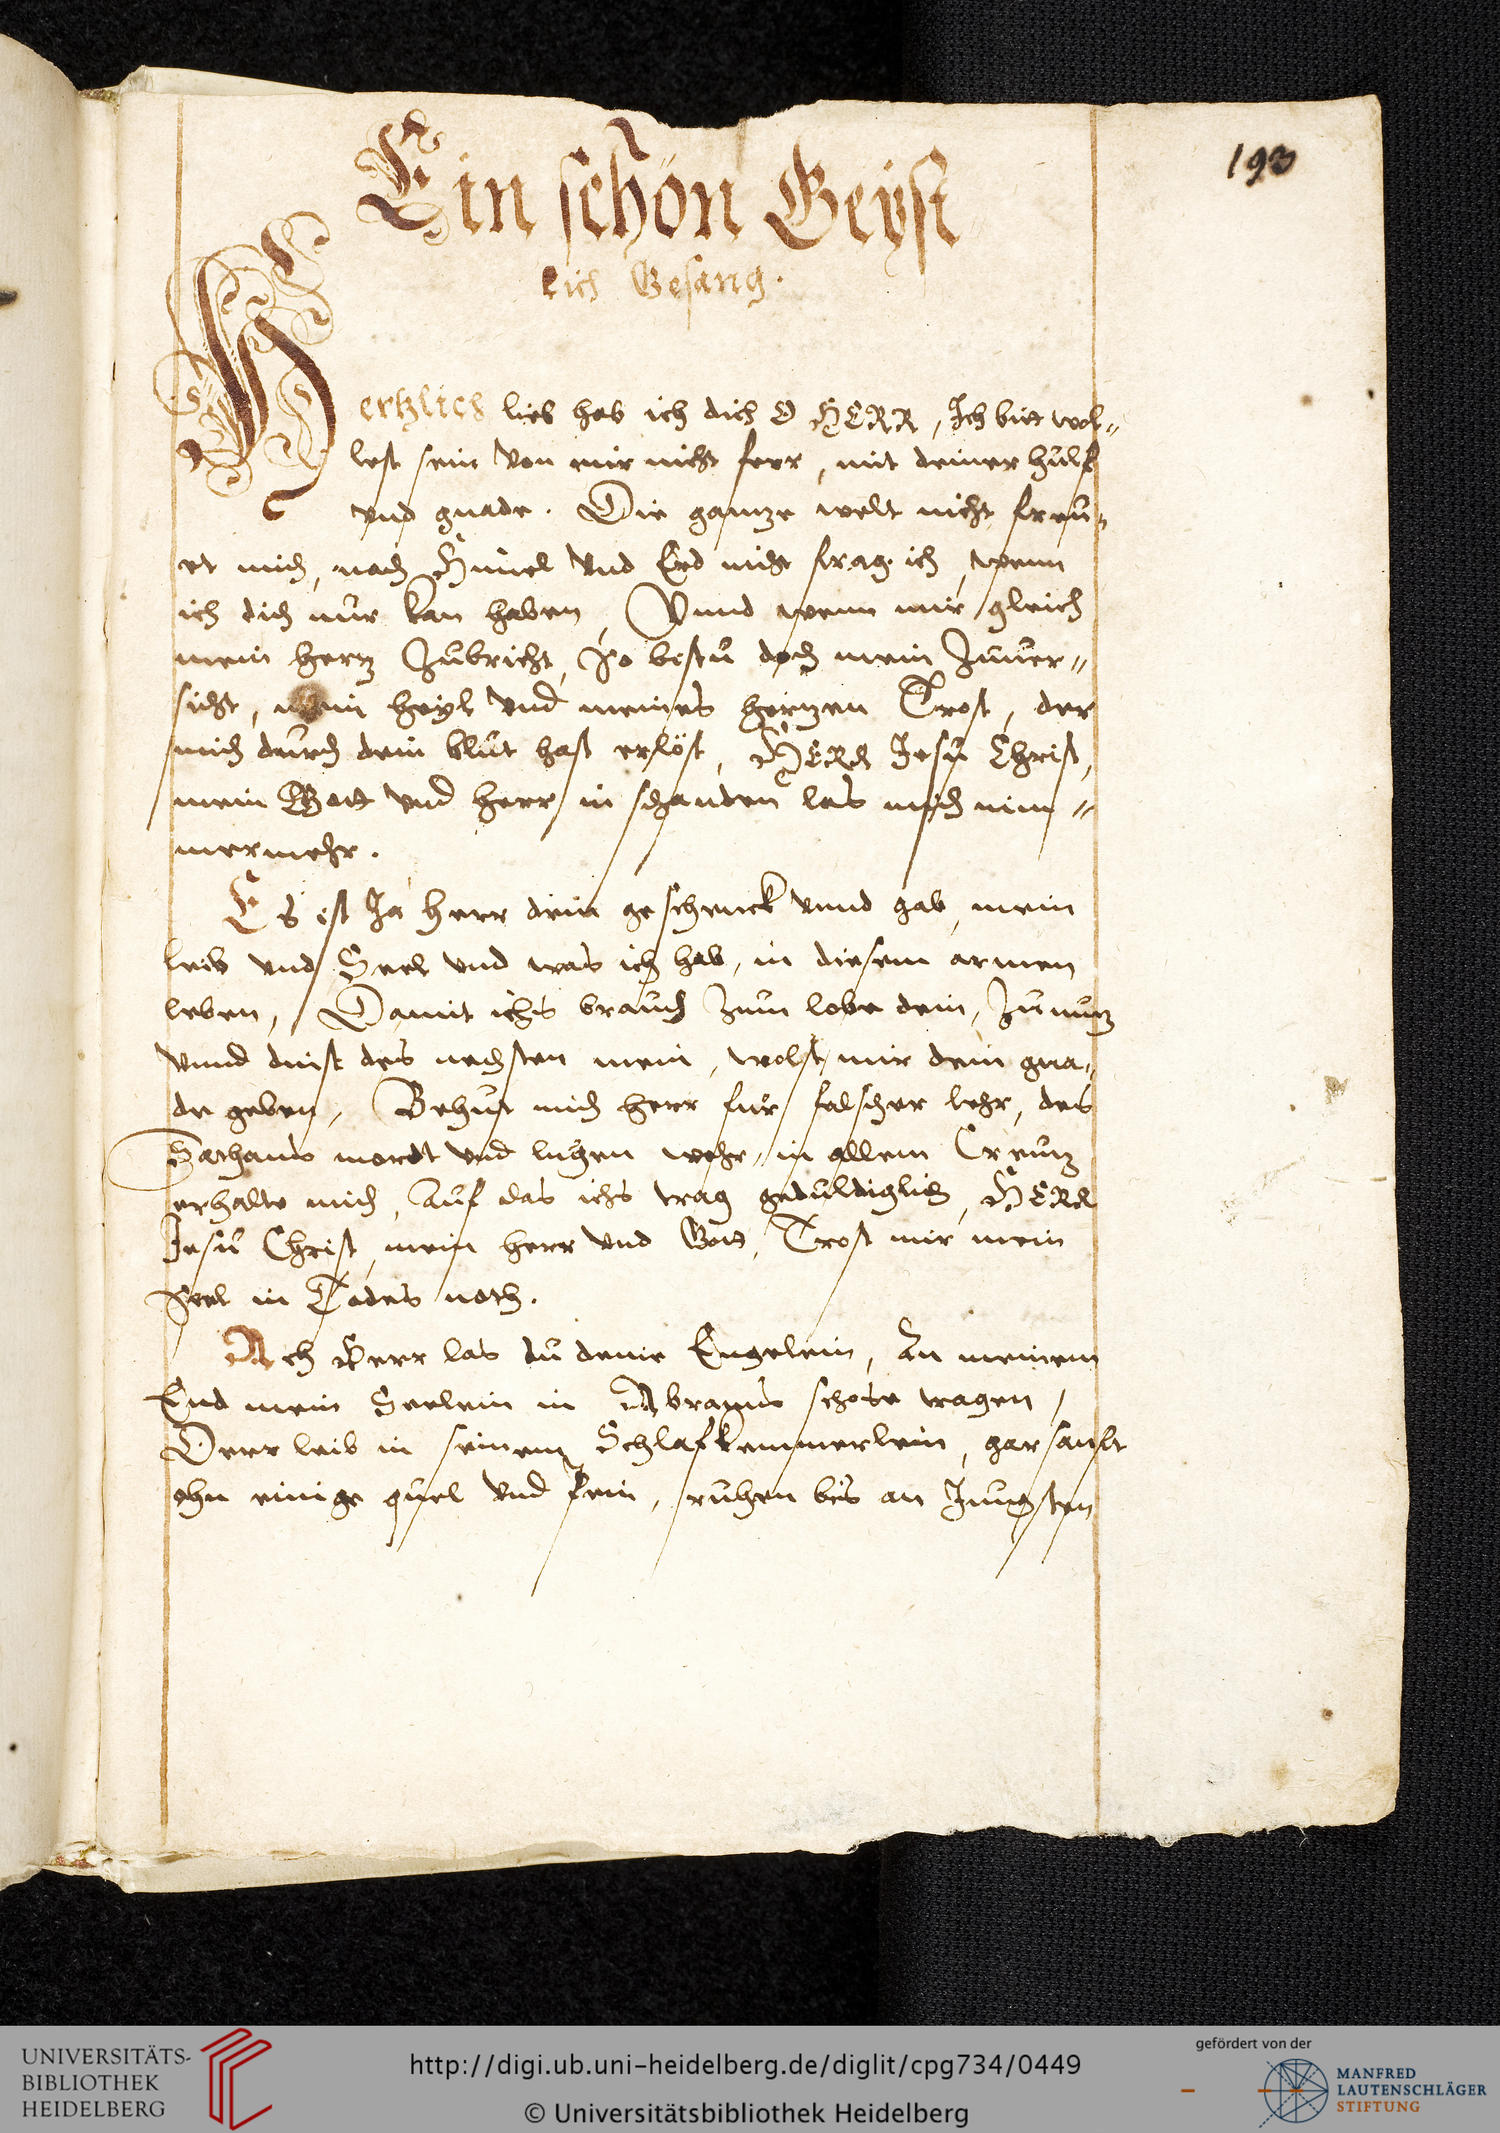 193
Ein schön Geÿst
lich Gesang.
Hertzlich lieb hab ich dich O HERR, Ich bitt wol-
lest sein von mir nicht ferr, mit deiner hulf
vnd gnade. Die gantze welt nicht freu-
et mich, nach Himel vnd Erd nicht frag ich, wenn
ich dich nur kan haben, Vnnd wenn mir gleich
mein hertz Zubricht, so bistu doch mein Zuuer-
sicht, mein heyl vnd meines hertzen Trost, der
mich durch dein blut hast erlöst, HERR Jesu Christ,
mein Gott vnd herr in schanden las mich nim-
mermehr.
Es ist Ja herr dein geschenck vnnd gab, mein
leib vnd Seel vnd was ich hab, in diesem armen
leben, Damit ichs brauch zum lobe dein, Zu nutz
vnnd dinst des nechsten mein, wolst mir dein gna-
de geben, Behut mich herr fur falscher lehr, des
Sathans mordt vnd lugen wehr, in allem Creutz
erhalte mich, Auf das ichs trag gedultiglich, HERR
Jesu Christ, mein herr vnd Gott, Trost mir mein
seel in Todes noth.
Ach Herr las du deine Engelein, An meinem
End mein Seelein in Abrams schose tragen,
Derr leib in seinem Schlafkemmerlein, gar sanft
ohn einige quel vnd Pein, ruhen bis an Jungsten
UNIVERSITÄTS-
BIBLIOTHEK
HEIDELBERG
http://digi.ub.uni-heidelberg.de/diglit/cpg734/0449
© Universitätsbibliothek Heidelberg
gefördert von der
MANFRED
LAUTENSCHLÄGER
STIFTUNG